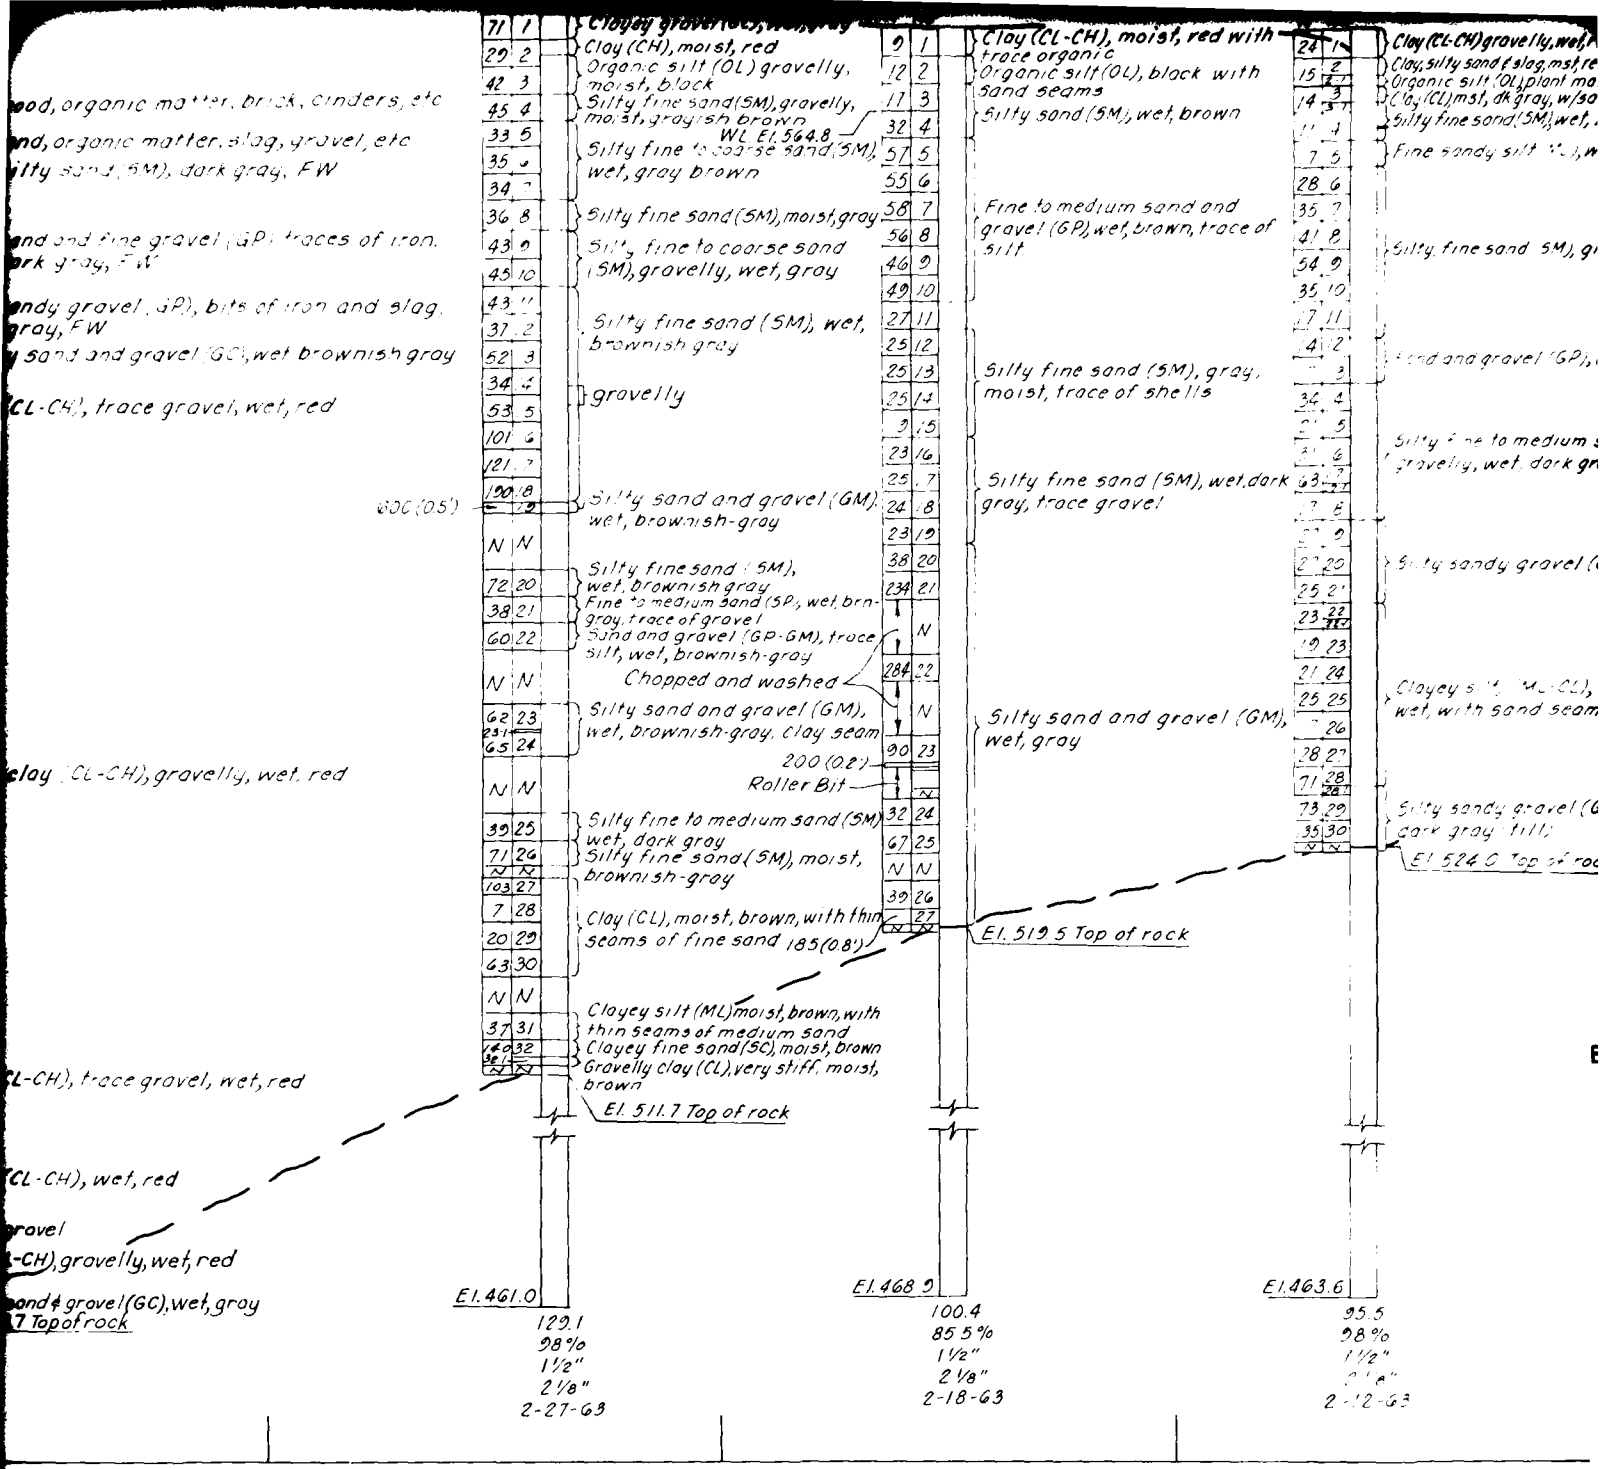 organic matter, brick, cinders, etc
organic matter, slag, gravel, etc
sand (SM), dark gray, FW
and fine gravel (GP) traces of iron,
gray, FW
gravel (GP), bits of iron and slag,
gray, FW
sand and gravel (GC), wet brownish gray
(CL-CH), trace gravel, wet, red
clay (CL-CH), gravelly, wet, red
CL-CH), trace gravel, wet, red
(CL-CH), wet, red
gravel
-CH), gravelly, wet, red
& gravel (GC), wet, gray
7 Top of rock
71 1
29 2
42 3
45 4
33 5
35 6
34 7
36 8
43 9
45 10
43 11
37 2
52 3
34 4
53 5
101 6
121 7
190 18
19
600 (0.5')
N N
72 20
38 21
60 22
N N
62 23
23-1
65 24
N N
39 25
71 26
N N
103 27
7 28
20 29
63 30
N N
37 31
140 32
32-1
N N
Clayey gravel (GC), wet, gray
Clay (CH), moist, red
Organic silt (OL) gravelly,
moist, black
Silty fine sand (SM), gravelly,
moist, grayish brown
WL El. 564.8
Silty fine to coarse sand (SM),
wet, gray brown
Silty fine sand (SM), moist, gray
Silty fine to coarse sand
(SM), gravelly, wet, gray
Silty fine sand (SM), wet,
brownish gray
gravelly
Silty sand and gravel (GM)
wet, brownish-gray
Silty fine sand (SM),
wet, brownish gray
Fine to medium sand (SP), wet, brn-
gray, trace of gravel
Sand and gravel (GP-GM), trace
silt, wet, brownish-gray
Chopped and washed
Silty sand and gravel (GM),
wet, brownish-gray, clay seam
200 (0.2')
Roller Bit
Silty fine to medium sand (SM)
wet, dark gray
Silty fine sand (SM), moist,
brownish-gray
Clay (CL), moist, brown, with thin
seams of fine sand 185 (0.8')
Clayey silt (ML) moist, brown, with
thin seams of medium sand
Clayey fine sand (SC), moist, brown
Gravelly clay (CL), very stiff, moist,
brown
El. 511.7 Top of rock
El. 461.0
129.1
98%
1 1/2"
2 1/8"
2-27-63
9 1
12 2
17 3
32 4
57 5
55 6
58 7
56 8
46 9
49 10
27 11
25 12
25 13
25 14
9 15
23 16
25 7
24 18
23 19
38 20
234 21
N
284 22
N
90 23
N
32 24
67 25
N N
39 26
27
N N
Clay (CL-CH), moist, red with
trace organic
Organic silt (OL), black with
sand seams
Silty sand (SM), wet, brown
Fine to medium sand and
gravel (GP), wet, brown, trace of
silt
Silty fine sand (SM), gray,
moist, trace of shells
Silty fine sand (SM), wet, dark
gray, trace gravel
Silty sand and gravel (GM),
wet, gray
El. 519.5 Top of rock
El. 468.9
100.4
85.5%
1 1/2"
2 1/8"
2-18-63
24 1
15 2
14 3
4
7 5
28 6
35 7
41 8
54 9
35 10
17 11
14 12
3
34 4
5
6
63
8
9
20
25 21
23 22
19 23
21 24
25 25
26
28 27
71 28
73 29
35 30
N N
Clay (CL-CH) gravelly, wet,
Clay, silty sand & slag, mst,
Organic silt (OL) plant
Clay (CL), mst, dk gray,
Silty fine sand (SM), wet,
Fine sandy silt
Silty fine sand (SM),
Sand and gravel (GP),
Silty fine to medium
gravelly, wet, dark
Silty sandy gravel
Clayey silt (ML-CL),
wet, with sand seam
Silty sandy gravel
dark gray (till)
El. 524.0 Top of
El. 463.6
95.5
98%
1 1/2"
2 1/8"
2-12-63